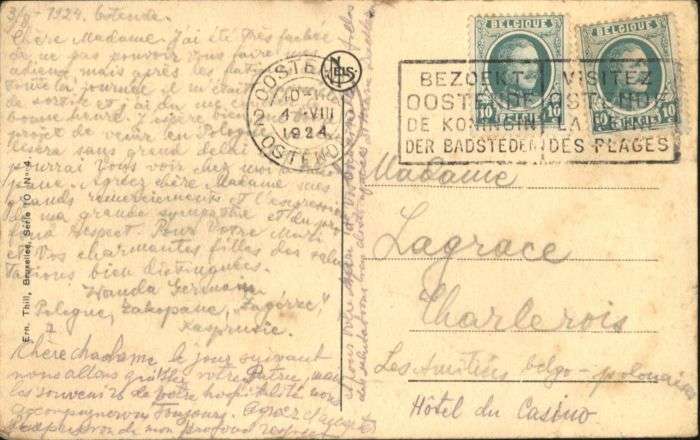 3/8 - 1924. Ostende.
Chère Madame. J'ai été très fachée
de ne pas pouvoir Vous faire mes
adieux mais après les
toute la journée il m'était
de sortir et j'ai du me
bonne heure. J'espère bien
projet de venir en Pologne
lisera sans grand delai
pourrai Vous voir chez moi
pane. Agréez chère Madame mes
grands remerciements et l'expression
de ma grande sympathie et du pro-
fond respect. Pour Votre Mari
et Vos charmantes filles des salu-
tations bien distinguées.
Wanda Germain
Pologne, Zakopane, "
Kasprusie.
Chère Madame le jour suivant
nous allons quitter votre Patrie, mais
les souvenirs de votre hospitalité nous
accompagneron toujours. Agréez
l'expression de mon profond respect
Ern. Thill, Bruxelles, Série 10 No 4.
NELS
OOSTENDE
2
4 VIII
1924
OSTENDE
BELGIQUE
BELGIË
10
10
BELGIQUE
BELGIË
10
10
BEZOEKT
OOSTENDE
DE KONINGIN
DER BADSTEDEN
VISITEZ
OSTENDE
LA
DES PLAGES
Madame
Lagrace
Charlerois
Les Amitiés belgo-polonaises
Hôtel du Casino